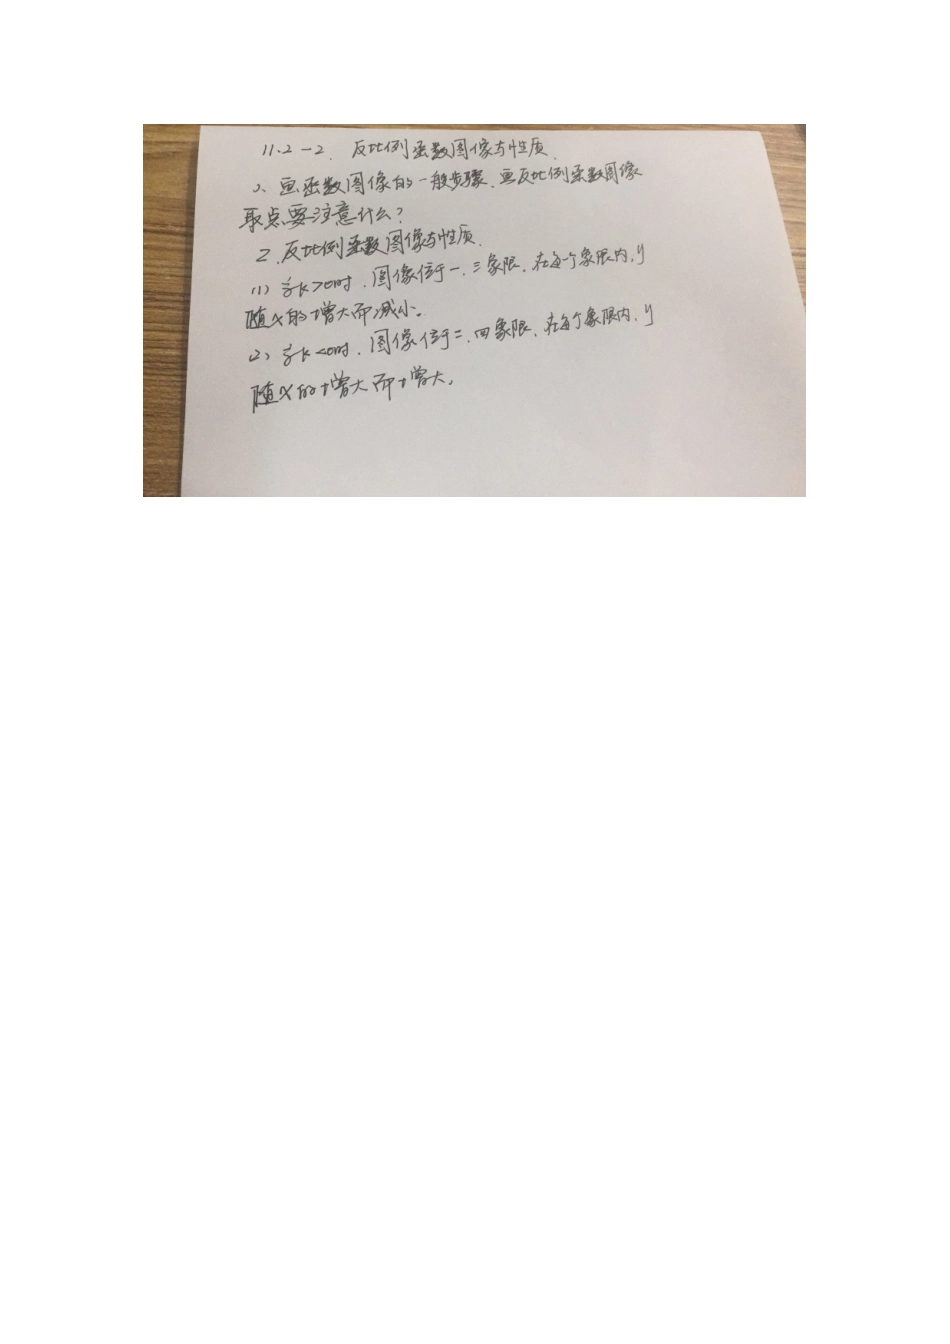 11.2-2. 反比例函数图像与性质.
1、画函数图像的一般步骤.画反比例函数图像
取点要注意什么?
2.反比例函数图像与性质.
(1) 当k>0时.图像位于一.三象限.在每个象限内,y
随x的增大而减小。
(2) 当k<0时.图像位于二.四象限.在每个象限内.y
随x的增大而增大。